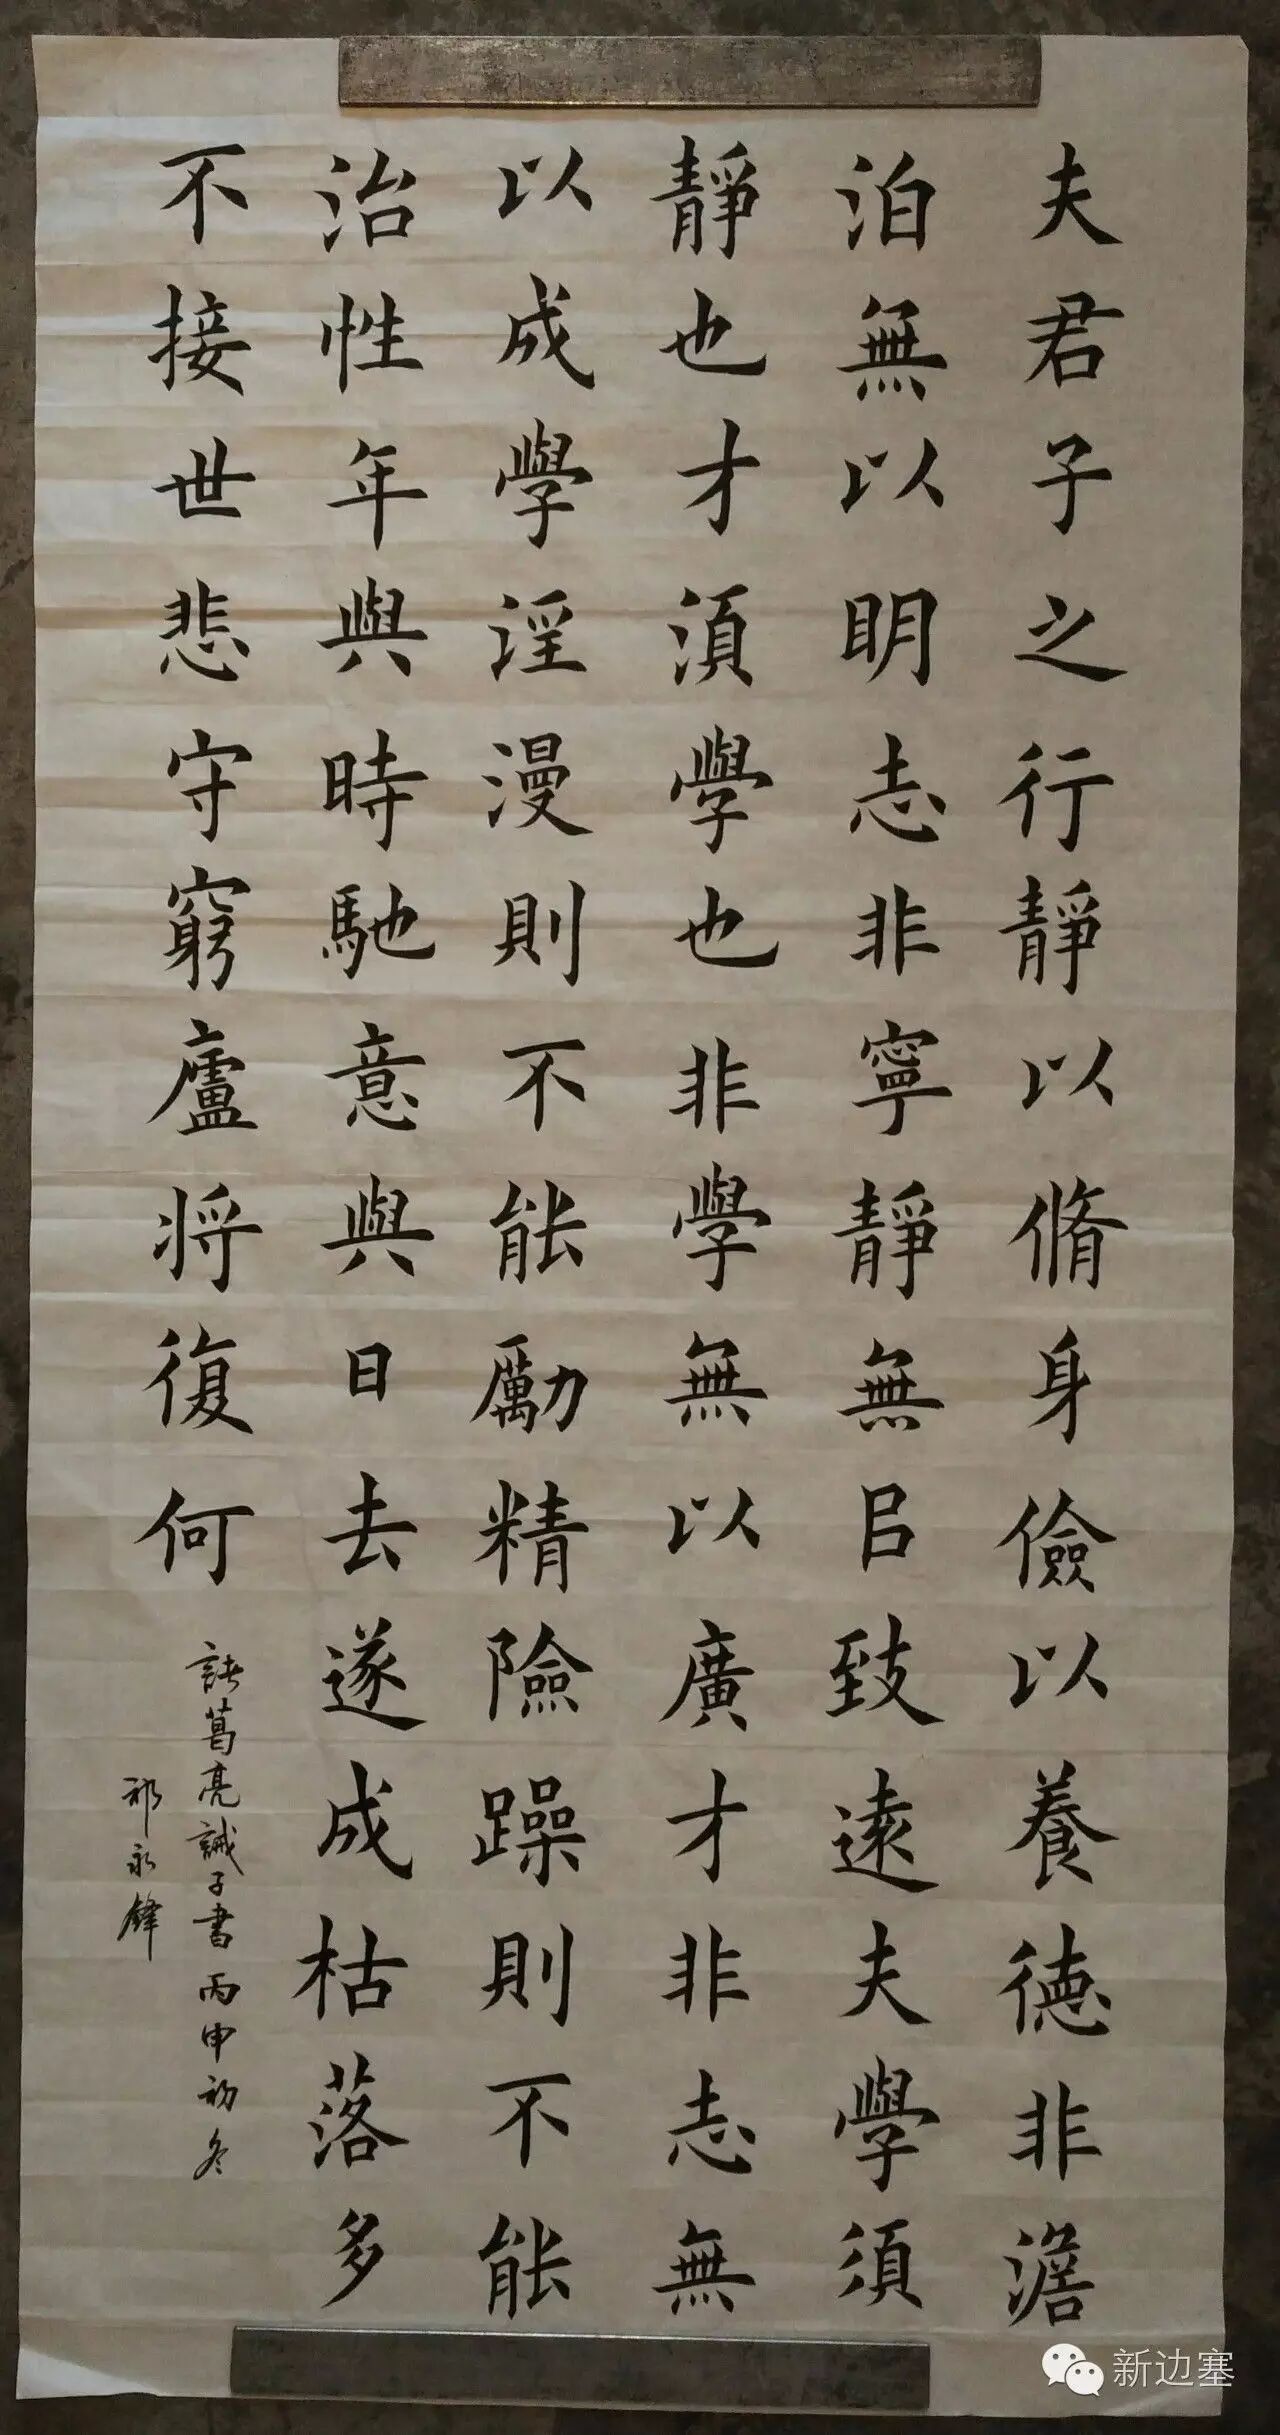 夫君子之行靜以脩身儉以養徳非澹
泊無以明志非寧靜無㠯致遠夫學須
靜也才湏學也非學無以廣才非志無
以成學淫漫則不能勵精險躁則不能
治性年與時馳意與日去遂成枯落多
不接世悲守窮廬将復何
諸葛亮誡子書丙申初冬
祁永鋒
新边塞